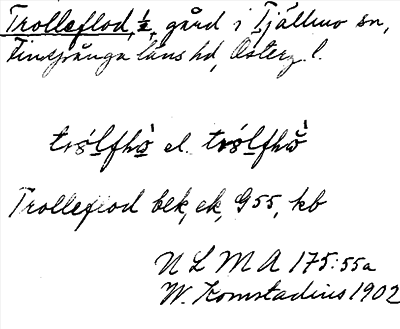 Trolleflod, ½, gård i Tjällmo sn,
Finspånga läns hd, Österg. l.
el.
Trolleflod bek, ek, G 55, kb
N L M A 175:55a
W. Komstadius 1902